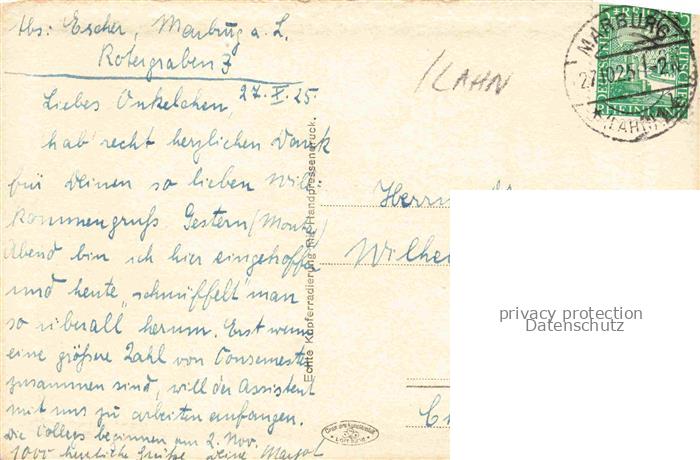 Abs: Escher, Marburg a. L.
Rotergraben 3
27. X. 25.
Liebes Onkelchen,
hab' recht herzlichen Dank
für Deinen so lieben Will-
kommengruß. Gestern (Montag)
Abend bin ich hier eingetroffen
und heute "schnüffelt" man
so überall herum. Erst wenn
eine größere Zahl von Consemester
zusammen sind, will der Assistent
mit uns zu arbeiten anfangen.
Die Collegs beginnen am 2. Nov.
1000 herzliche Grüße, Deine Margot
/LAHN
MARBURG
27.10.25.1-2N
*(LAHN)
DEUTSCHES REICH
RHEINLAND
Echte Kupferradierung mit Handpressendruck.
Herrn
Wilhe
privacy protection
Datenschutz